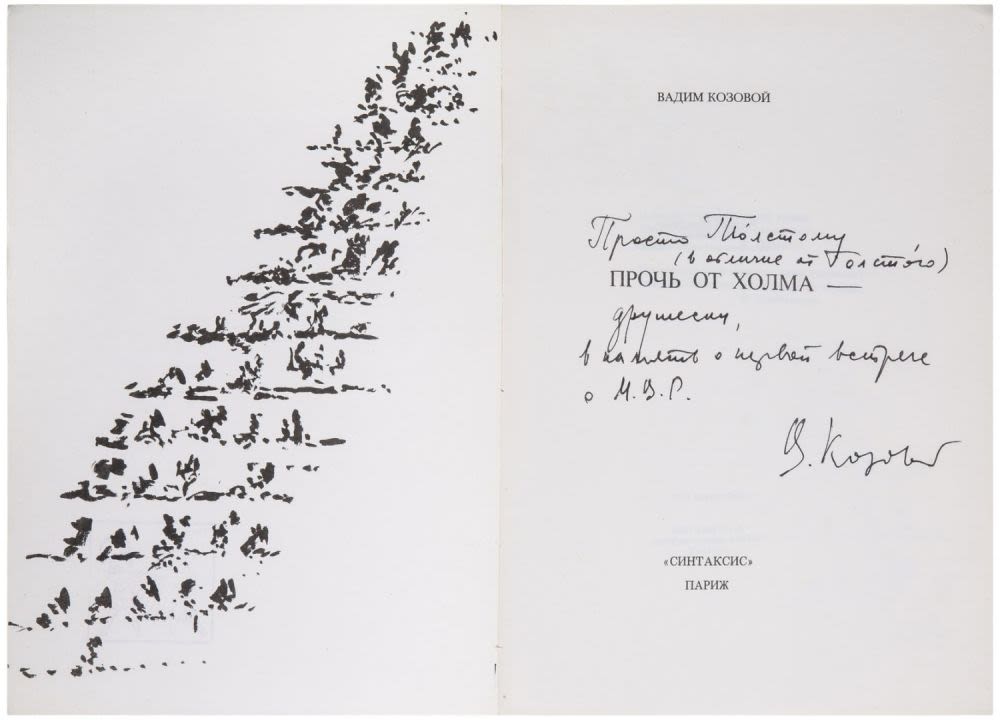 ВАДИМ КОЗОВОЙ
Просто То́лстому
(в отличие от Толсто́го)
ПРОЧЬ ОТ ХОЛМА —
дружески,
в память о первой встрече
о М.В.Г.
В. Козовой
«СИНТАКСИС»
ПАРИЖ